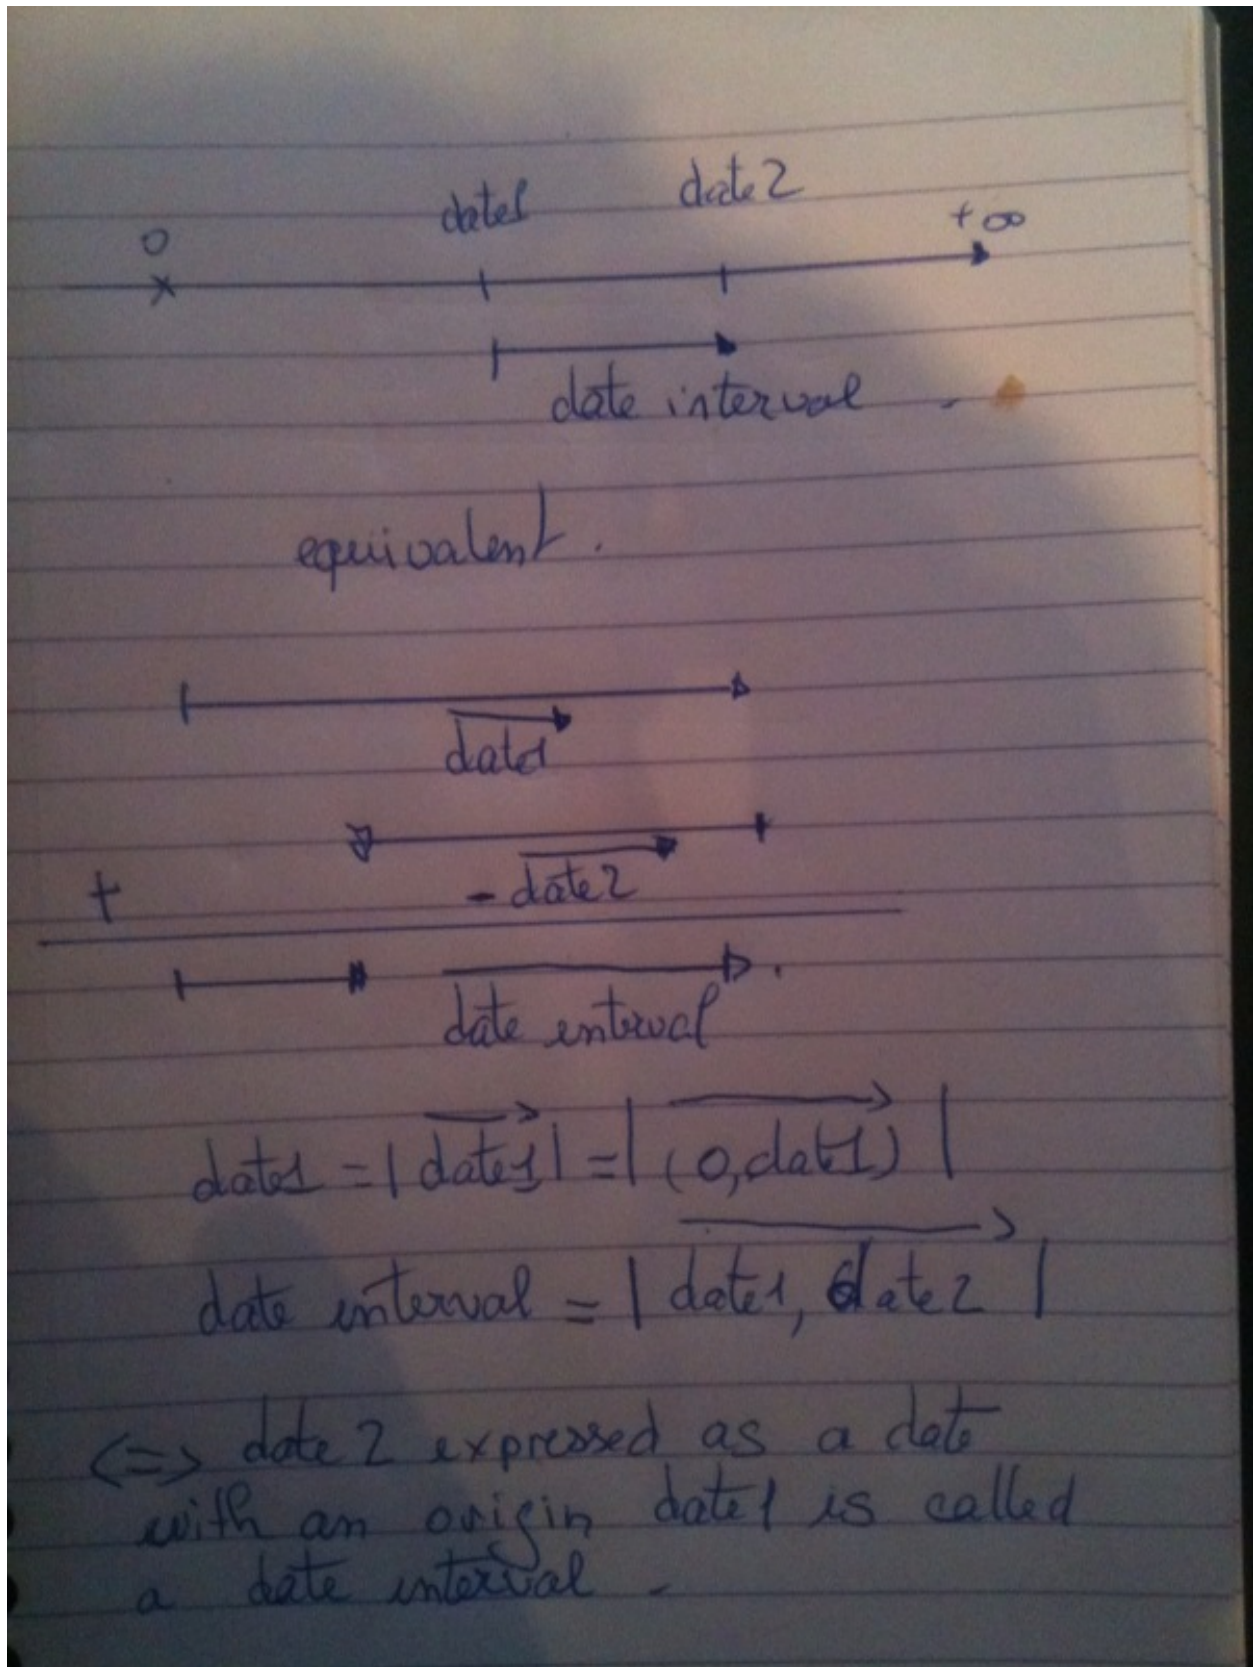 date1 date2
0 +∞
date interval
equivalent.
date1
+ - date2
date interval
date1 = |date1| = |(0,date1)|
date interval = |date1, date2|
<=> date2 expressed as a date
with an origin date1 is called
a date interval